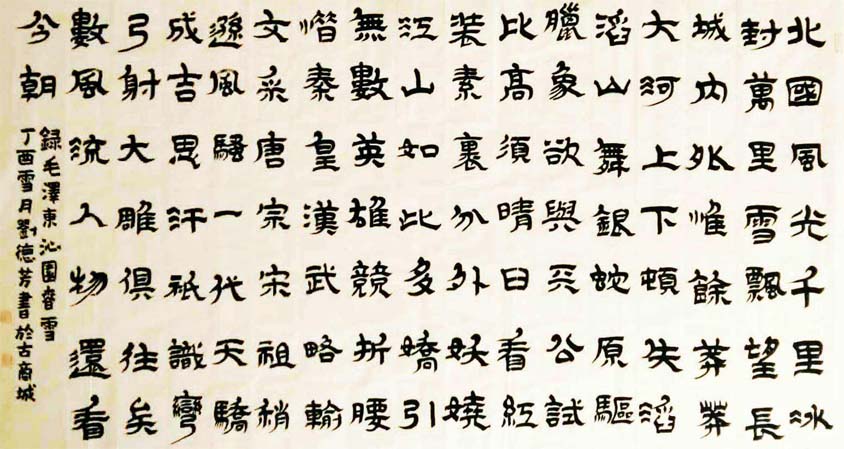 北國風光千里冰
封萬里雪飄望長
城内外惟餘莽莽
大河上下頓失滔
滔山舞銀蛇原驅
臘象欲與天公試
比高須晴日看紅
装素裹分外妖嬈
江山如此多嬌引
無數英雄競折腰
惜秦皇漢武略輸
文采唐宗宋祖稍
遜風騷一代天驕
成吉思汗祇識彎
弓射大雕俱往矣
數風流人物還看
今朝
録毛澤東沁園春雪
丁酉雪月劉德芳書於古商城